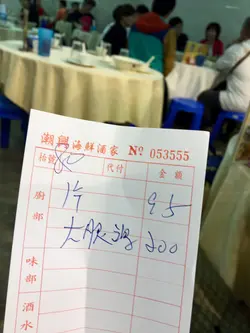 潮興海鮮酒家 Nº 053555
枱號 代付 金額
廚部 95
200
味部
酒水